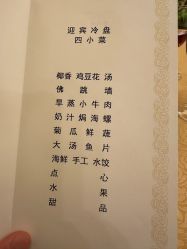 迎宾冷盘
四小菜
椰香鸡豆花汤
佛跳墙
旱蒸小牛肉
奶汁焗海螺
菊瓜鲜蔬
大汤鱼片
海鲜手工水饺
点心
水果
甜品